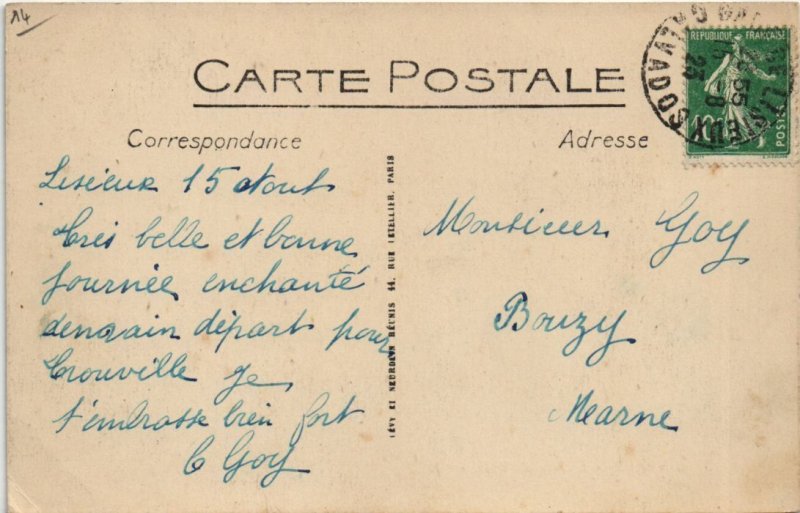 14
CARTE POSTALE
Correspondance
Adresse
REPUBLIQUE FRANÇAISE
10c
POSTES
LISIEUX
CALVADOS
Lisieux 15 Aout
Très belle et bonne
journée, enchanté
demain départ pour
Trouville Je
t'embrasse bien fort
G Goy
LÉVY ET NEURDEIN RÉUNIS 44, RUE LETELLIER, PARIS
Monsieur Goy
Bouzy
Marne